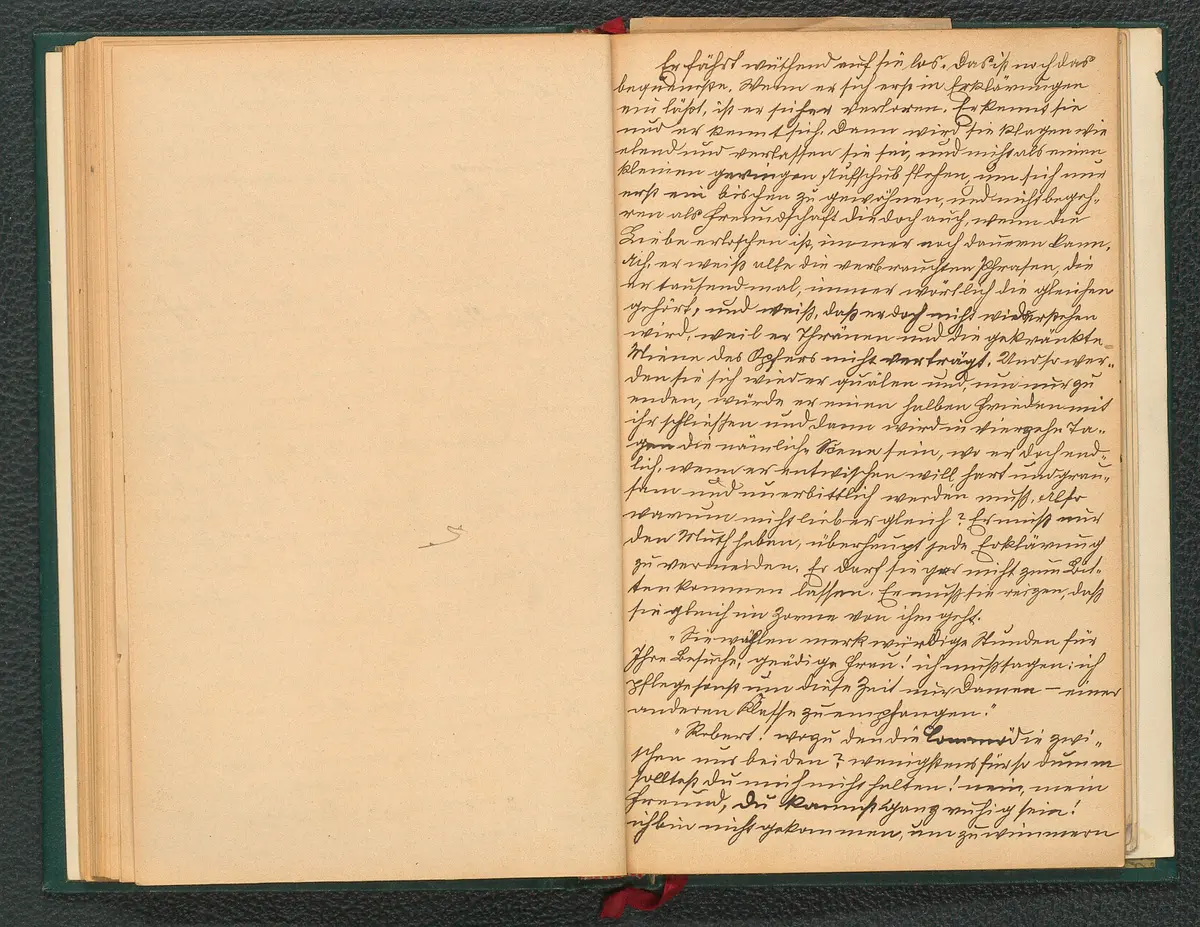 Er fährt wüthend auf sie los. Das ist noch das
bequemste. Wenn er sich erst in Erklärungen
einläßt, ist er sicher verloren. Er kennt sie
und er kennt sich. Dann wird sie klagen wie
elend und verlassen sie sei, und nicht als einen
kleinen geringen Aufschub flehen, um sich nur
erst ein bischen zu gewöhnen, und nicht begeh-
ren als Freundschaft die doch auch, wenn die
Liebe erloschen ist, immer noch dauern kann.
Ach, er weiß alle die verbrauchten Phrasen, die
er tausendmal, immer wörtlich die gleichen
gehört, und weiß, daß er doch nicht wiederstehen
wird, weil er Thränen und die gekränkte
Miene des Opfers nicht verträgt. Und so wer-
den sie sich wieder quälen und, um nur zu
enden, würde er einen halben Frieden mit
ihr schließen und dann wird in vierzehn Ta-
gen die nämliche Scene sein, wo er doch end-
lich, wenn er entwischen will hart und grau-
sam und unerbittlich werden muß. Also
warum nicht lieber gleich? Er muß nur
den Muth haben, überhaupt jede Erklärung
zu vermeiden. Er darf sie gar nicht zum Bit-
ten kommen lassen. Er muß sie reizen, daß
sie gleich im Zorne von ihm geht.
"Sie wählen merkwürdige Stunden für
Ihre Besuche, gnädige Frau! ich muß sagen: ich
pflege sonst um diese Zeit nur Damen — einer
anderen Klasse zu empfangen."
"Robert! wozu den die Commödie zwi-
schen uns beiden? wenigstens für so dumm
solltest du mich nicht halten! nein, mein
Freund, du kannst ganz ruhig sein!
ich bin nicht gekommen, um zu wimmern